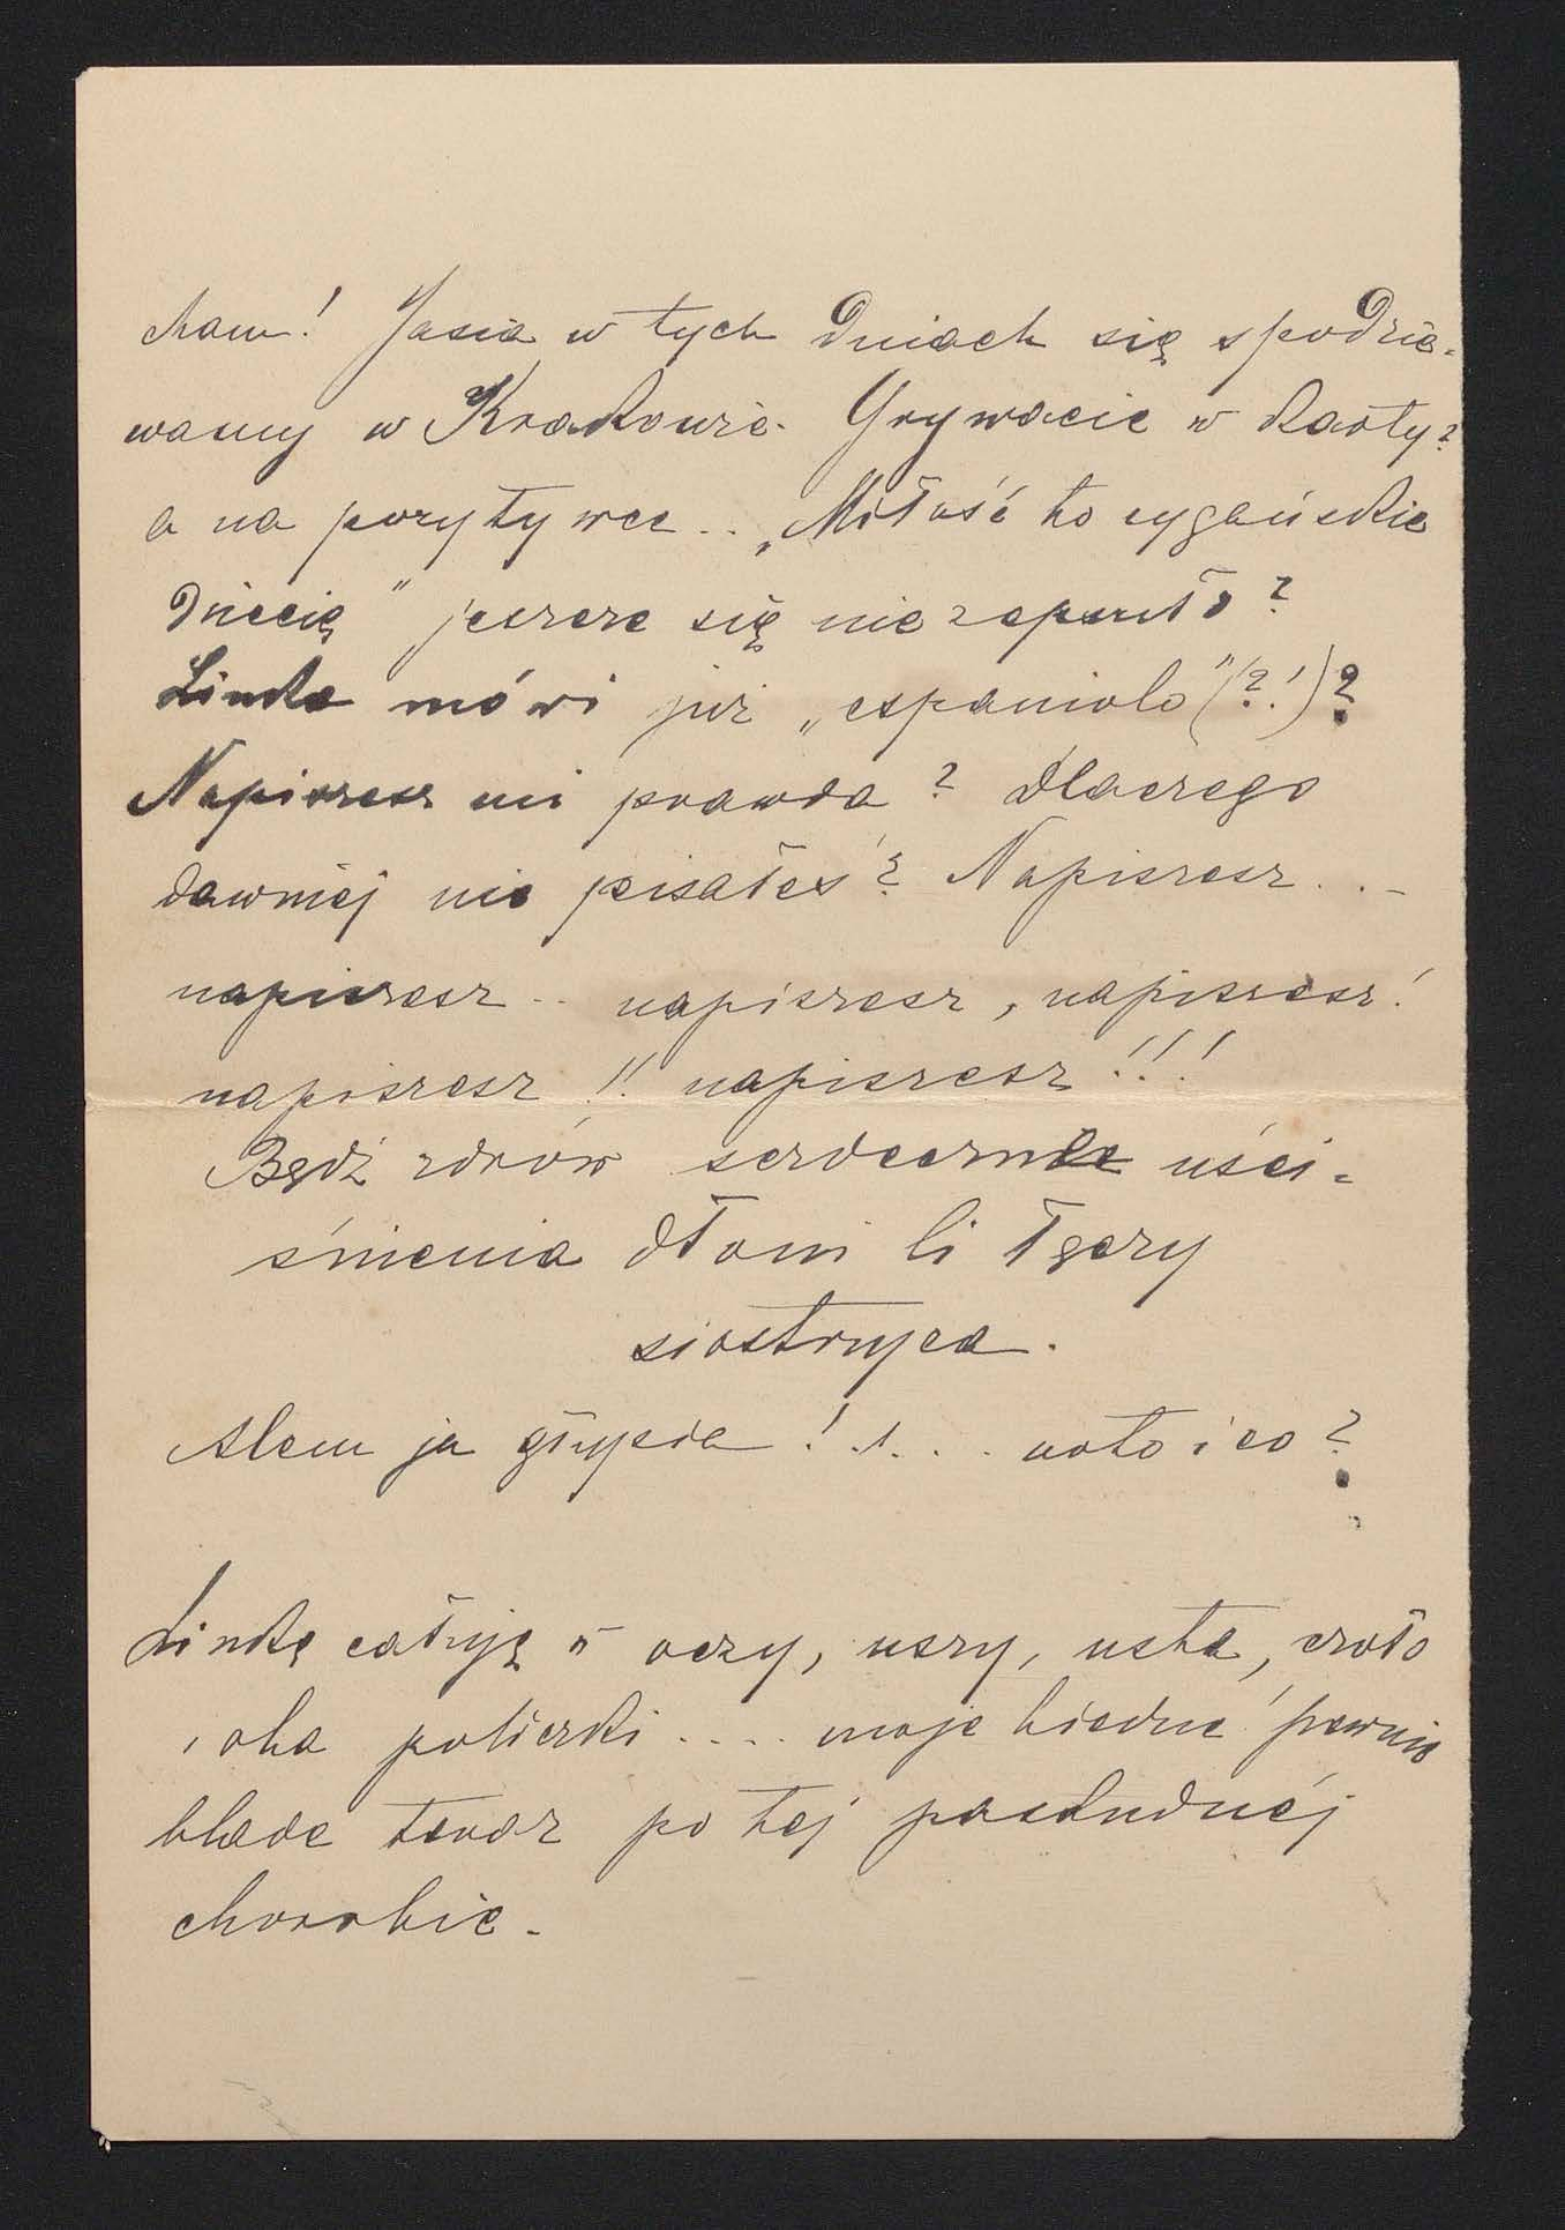 cham! Jasia w tych dniach się spodzie-
wamy w Krakowie. Grywacie w karty?
a na pozytywce... „Miłość to cygańskie
dziecię" jeszcze się nie zepsuło?
Linka mówi już „espaniolo"(?!)?
Napiszesz mi prawda? Dlaczego
dawniej nie pisałeś? Napiszesz...
napiszesz... napiszesz, napiszesz!
napiszesz!! napiszesz!!!
Bądź zdrów serdeczne uści-
śnienia dłoni Ci łączy
siostrzyca.
Alem ja głupia!... no to i co?
Linkę całuję w oczy, uszy, usta, czoło
i oba policzki.... moje biedne pewnie
blade teraz po tej paskudnéj
chorobie.